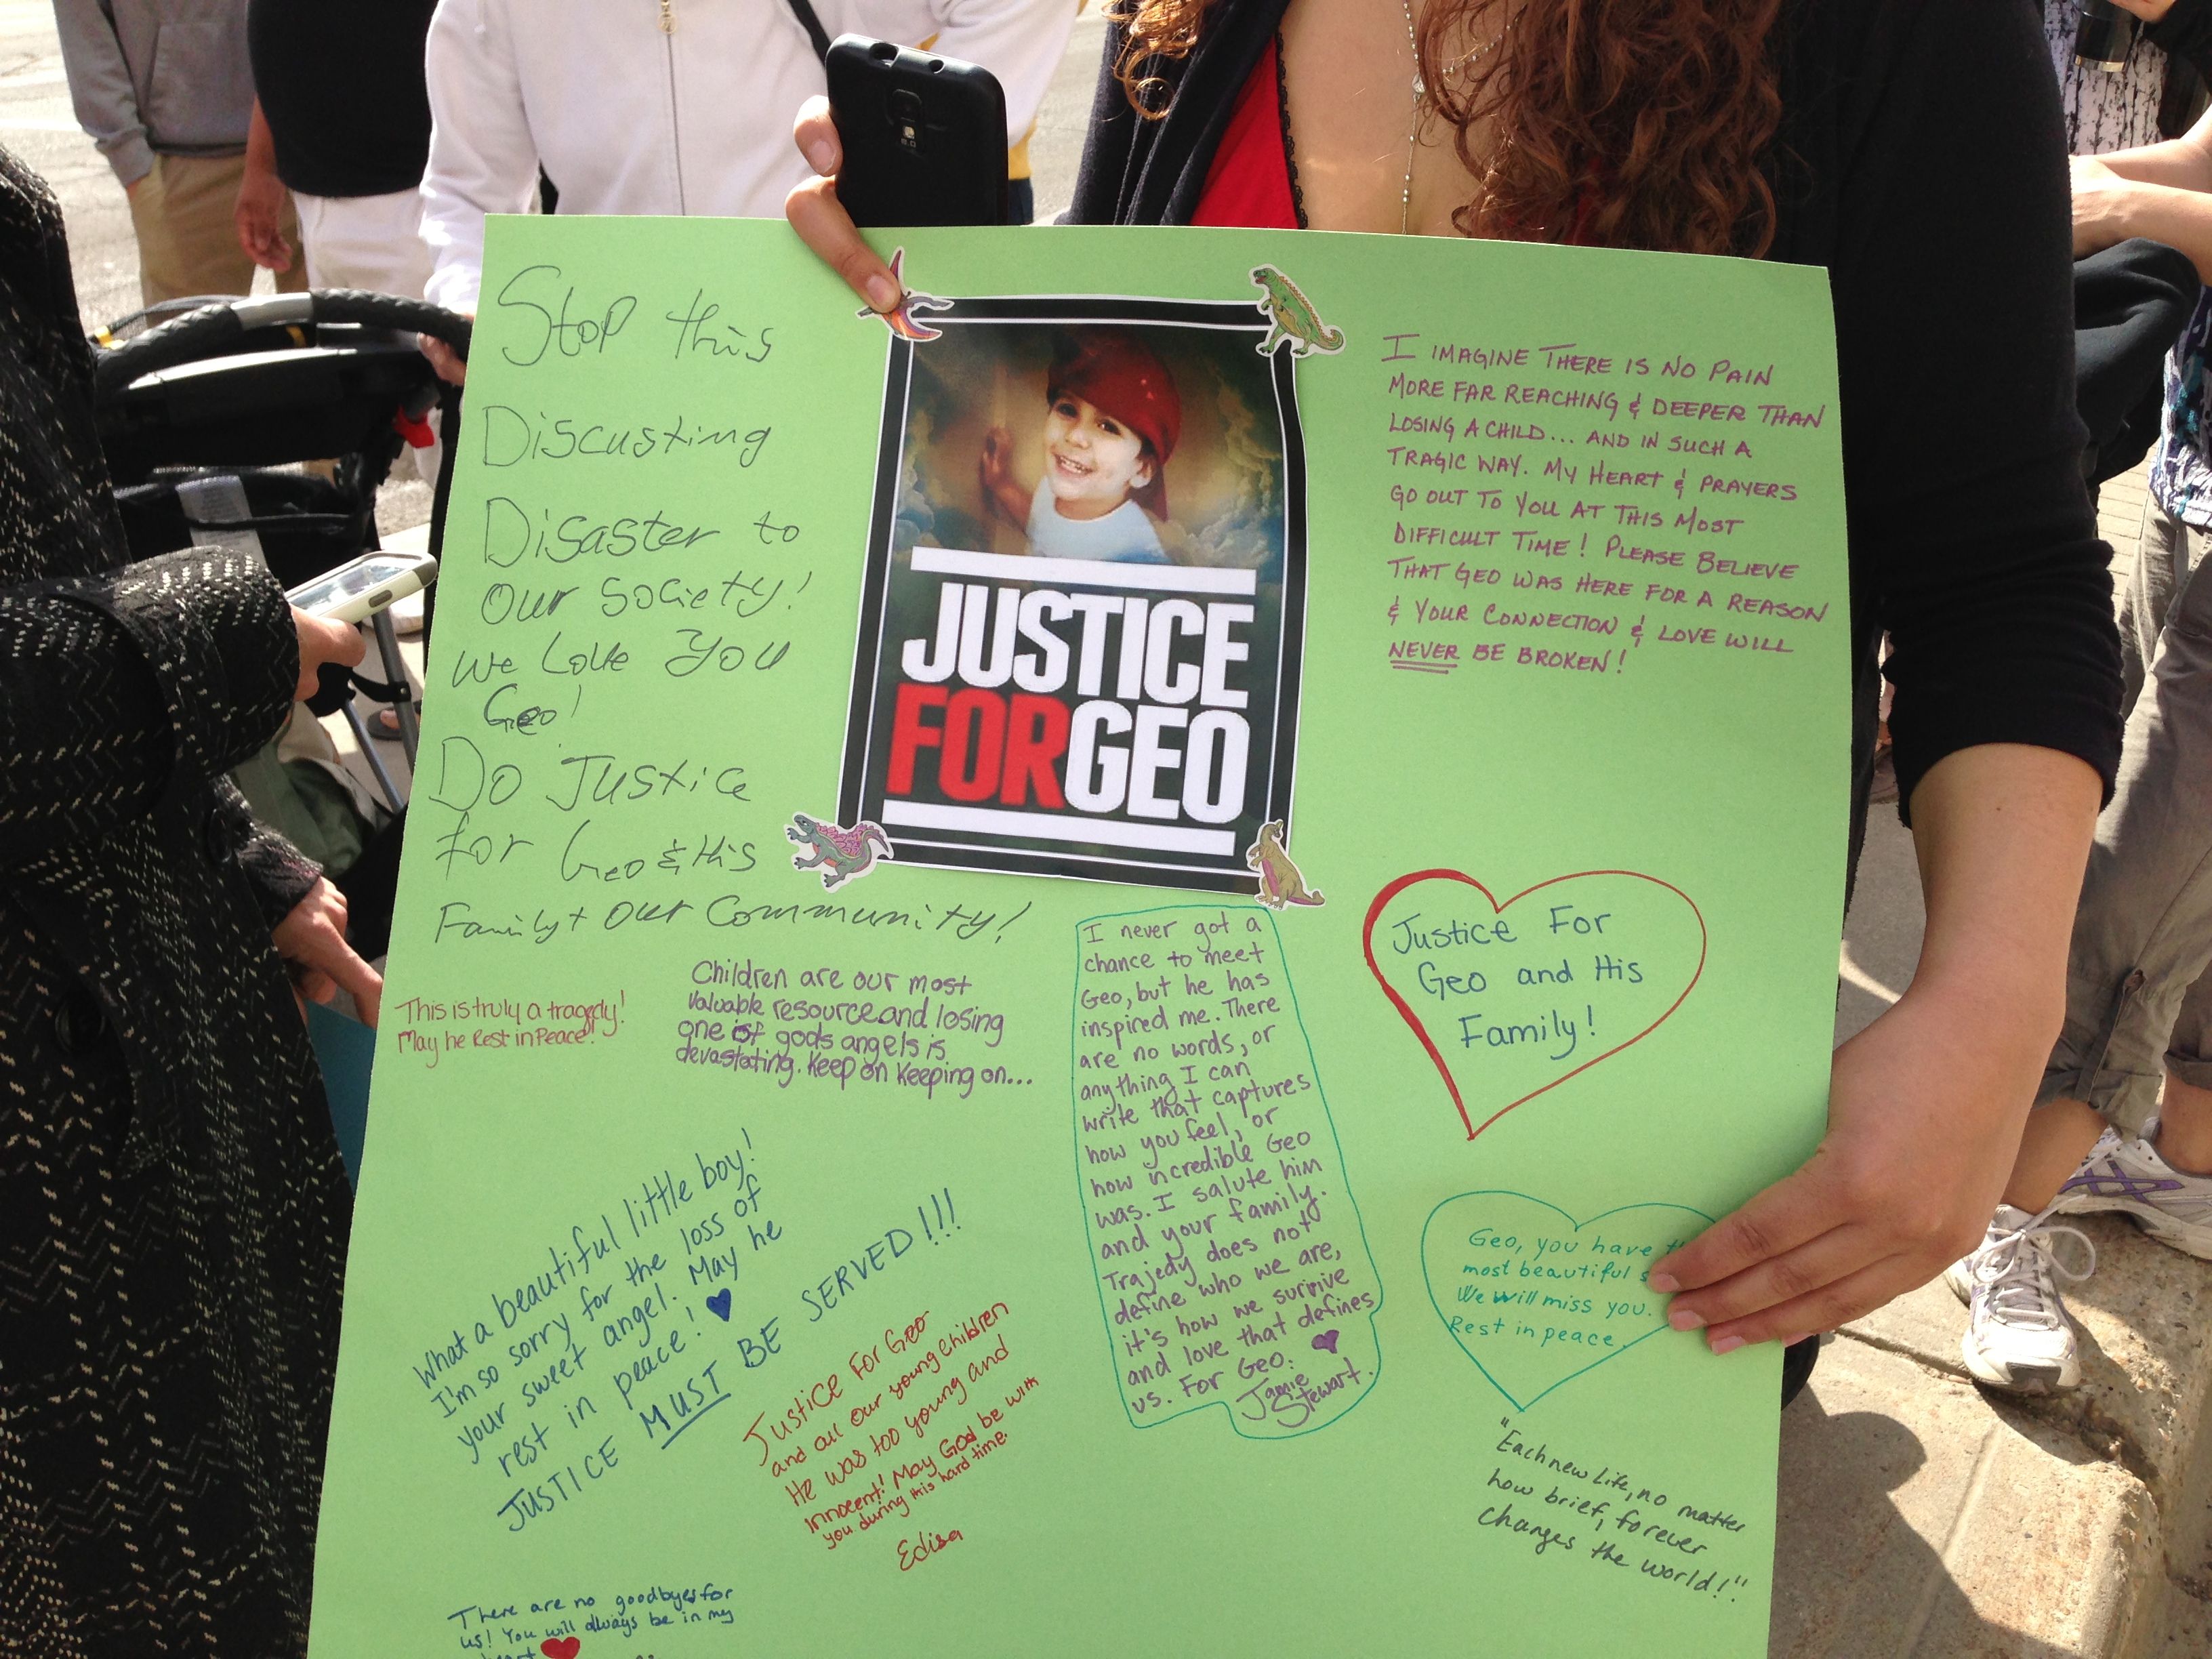 Stop this
Discusting
Disaster to
Our Society!
We Love You
Geo!
Do Justice
for Geo & His
Family + Our Community!
JUSTICE
FORGEO
I IMAGINE THERE IS NO PAIN
MORE FAR REACHING & DEEPER THAN
LOSING A CHILD... AND IN SUCH A
TRAGIC WAY. MY HEART & PRAYERS
GO OUT TO YOU AT THIS MOST
DIFFICULT TIME! PLEASE BELIEVE
THAT GEO WAS HERE FOR A REASON
& YOUR CONNECTION & LOVE WILL
NEVER BE BROKEN!
This is truly a tragedy!
May he Rest in Peace!
Children are our most
valuable resource and losing
one of gods angels is
devastating. Keep on Keeping on...
I never got a
chance to meet
Geo, but he has
inspired me. There
are no words, or
anything I can
write that captures
how you feel, or
how incredible Geo
was. I salute him
and your family.
Trajedy does not
define who we are,
it's how we survive
and love that defines
us. For Geo.
Jamie
Stewart.
Justice For
Geo and His
Family!
Geo, you have
most beautiful
We will miss you.
Rest in peace.
"Each new Life, no matter
how brief, forever
changes the world!"
What a beautiful little boy!
I'm so sorry for the loss of
your sweet angel. May he
rest in peace!
JUSTICE MUST BE SERVED!!!
Justice For Geo
and all our young children
He was too young and
innocent! May God be with
you during this hard time.
Edisa
There are no goodbyes for
us! You will always be in my
8.0